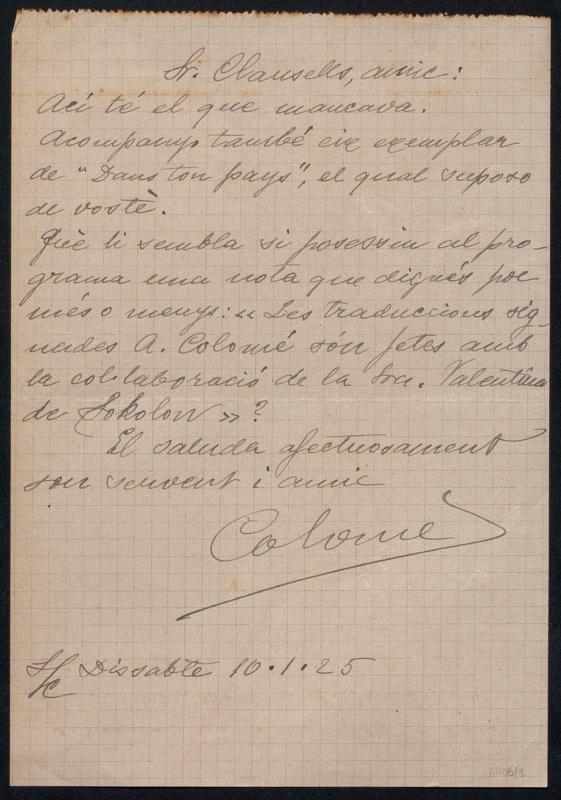 Sr. Clausells, amic:
Ací té el que mancava.
Acompanyo també eix exemplar
de "Dans ton pays", el qual suposo
de vostè.
Què li sembla si posessin al pro-
grama una nota que digués poc
més o menys: "Les traduccions sig-
nades A. Colomé són fetes amb
la col·laboració de la Sra. Valentina
de Sokolow»?
El saluda afectuosament
son servent i amic
Colomé
S/c Dissabte 10.1.25